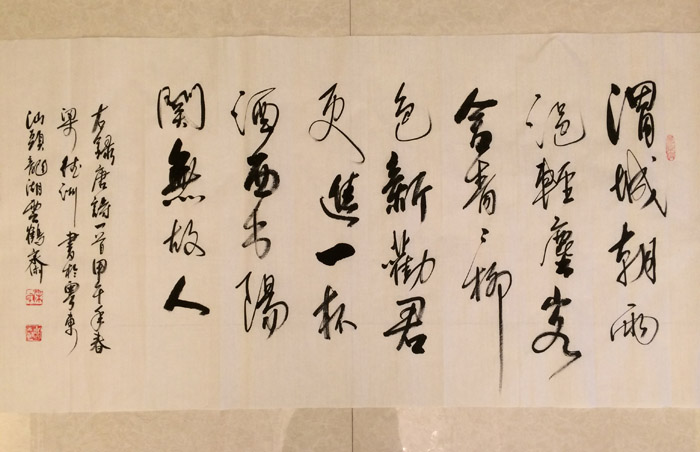 渭城朝雨
浥輕塵客
舍青々柳
色新勸君
更進一杯
酒西出陽
関無故人
右錄唐詩一首甲午年春
梁 洲書於粵東
汕頭龍湖雲鶴齋